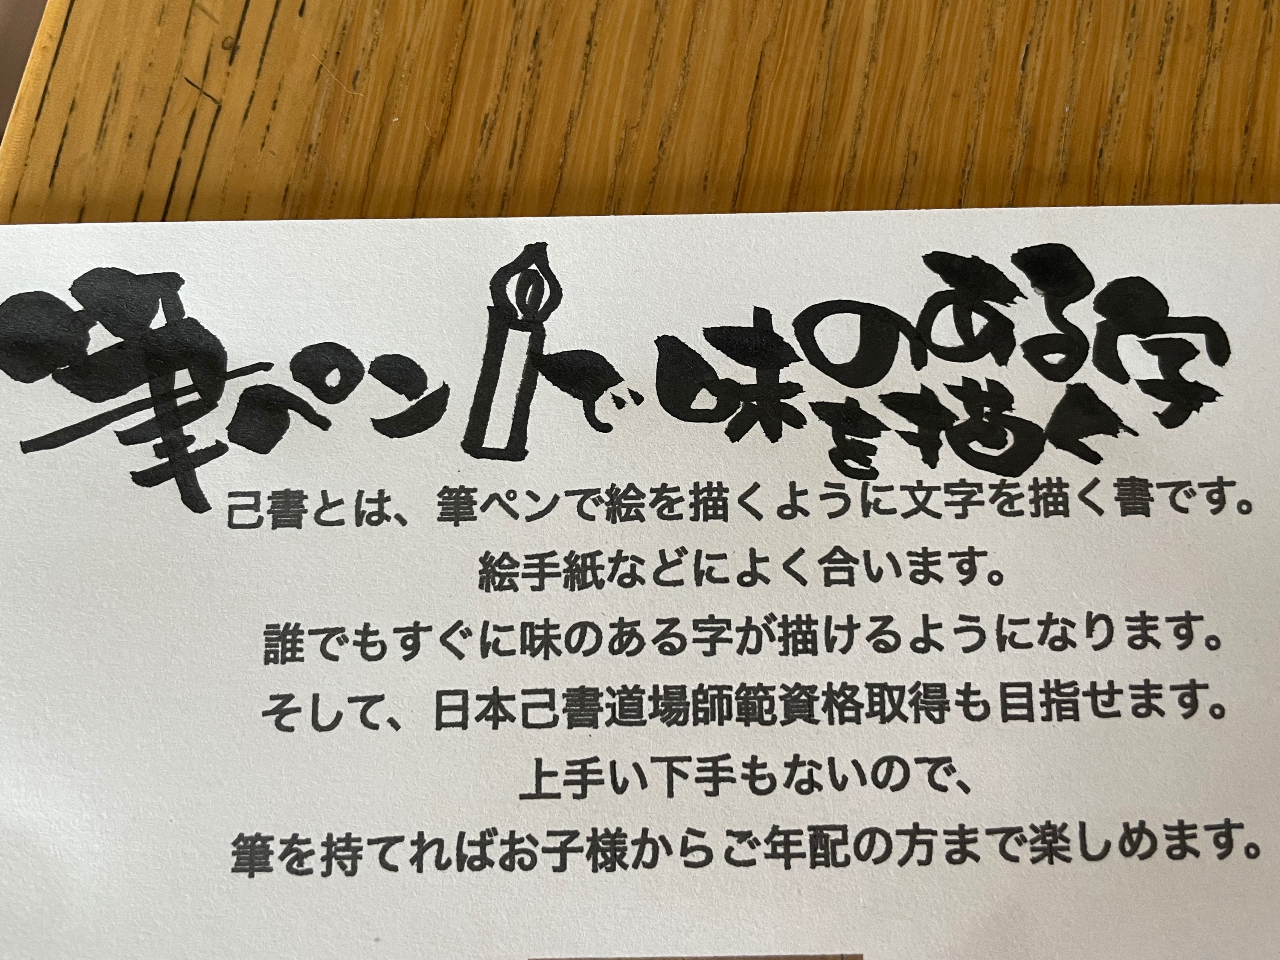 筆ペンで味のある字
を描く
己書とは、筆ペンで絵を描くように文字を描く書です。
絵手紙などによく合います。
誰でもすぐに味のある字が描けるようになります。
そして、日本己書道場師範資格取得も目指せます。
上手い下手もないので、
筆を持てればお子様からご年配の方まで楽しめます。